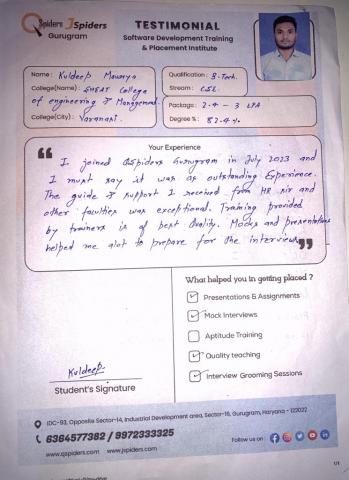 QSpiders JSpiders
Gurugram
TESTIMONIAL
Software Development Training
& Placement Institute
Name : Kuldeep Maurya
College(Name) : SHEAT College
of engineering & Management
College(City) : Varanasi.
Qualification : B-Tech.
Stream : CSE.
Package : 2.4 - 3 LPA
Degree % : 82.4 %
Your Experience
I joined QSpiders Gurugram in July 2023 and
I must say it was an outstanding Experience.
The guide & support I received from HR sir and
other faculties was exceptional. Training provided
by trainers is of best Quality. Mocks and presentations
helped me alot to prepare for the interviews.
What helped you in getting placed ?
Presentations & Assignments
Mock Interviews
Aptitude Training
Quality teaching
Interview Grooming Sessions
Kuldeep.
Student's Signature
IDC-93, Opposite Sector-14, Industrial Development area, Sector-16, Gurugram, Haryana - 122022
6364577382 / 9972333325
www.qspiders.com www.jspiders.com
Follow us on :